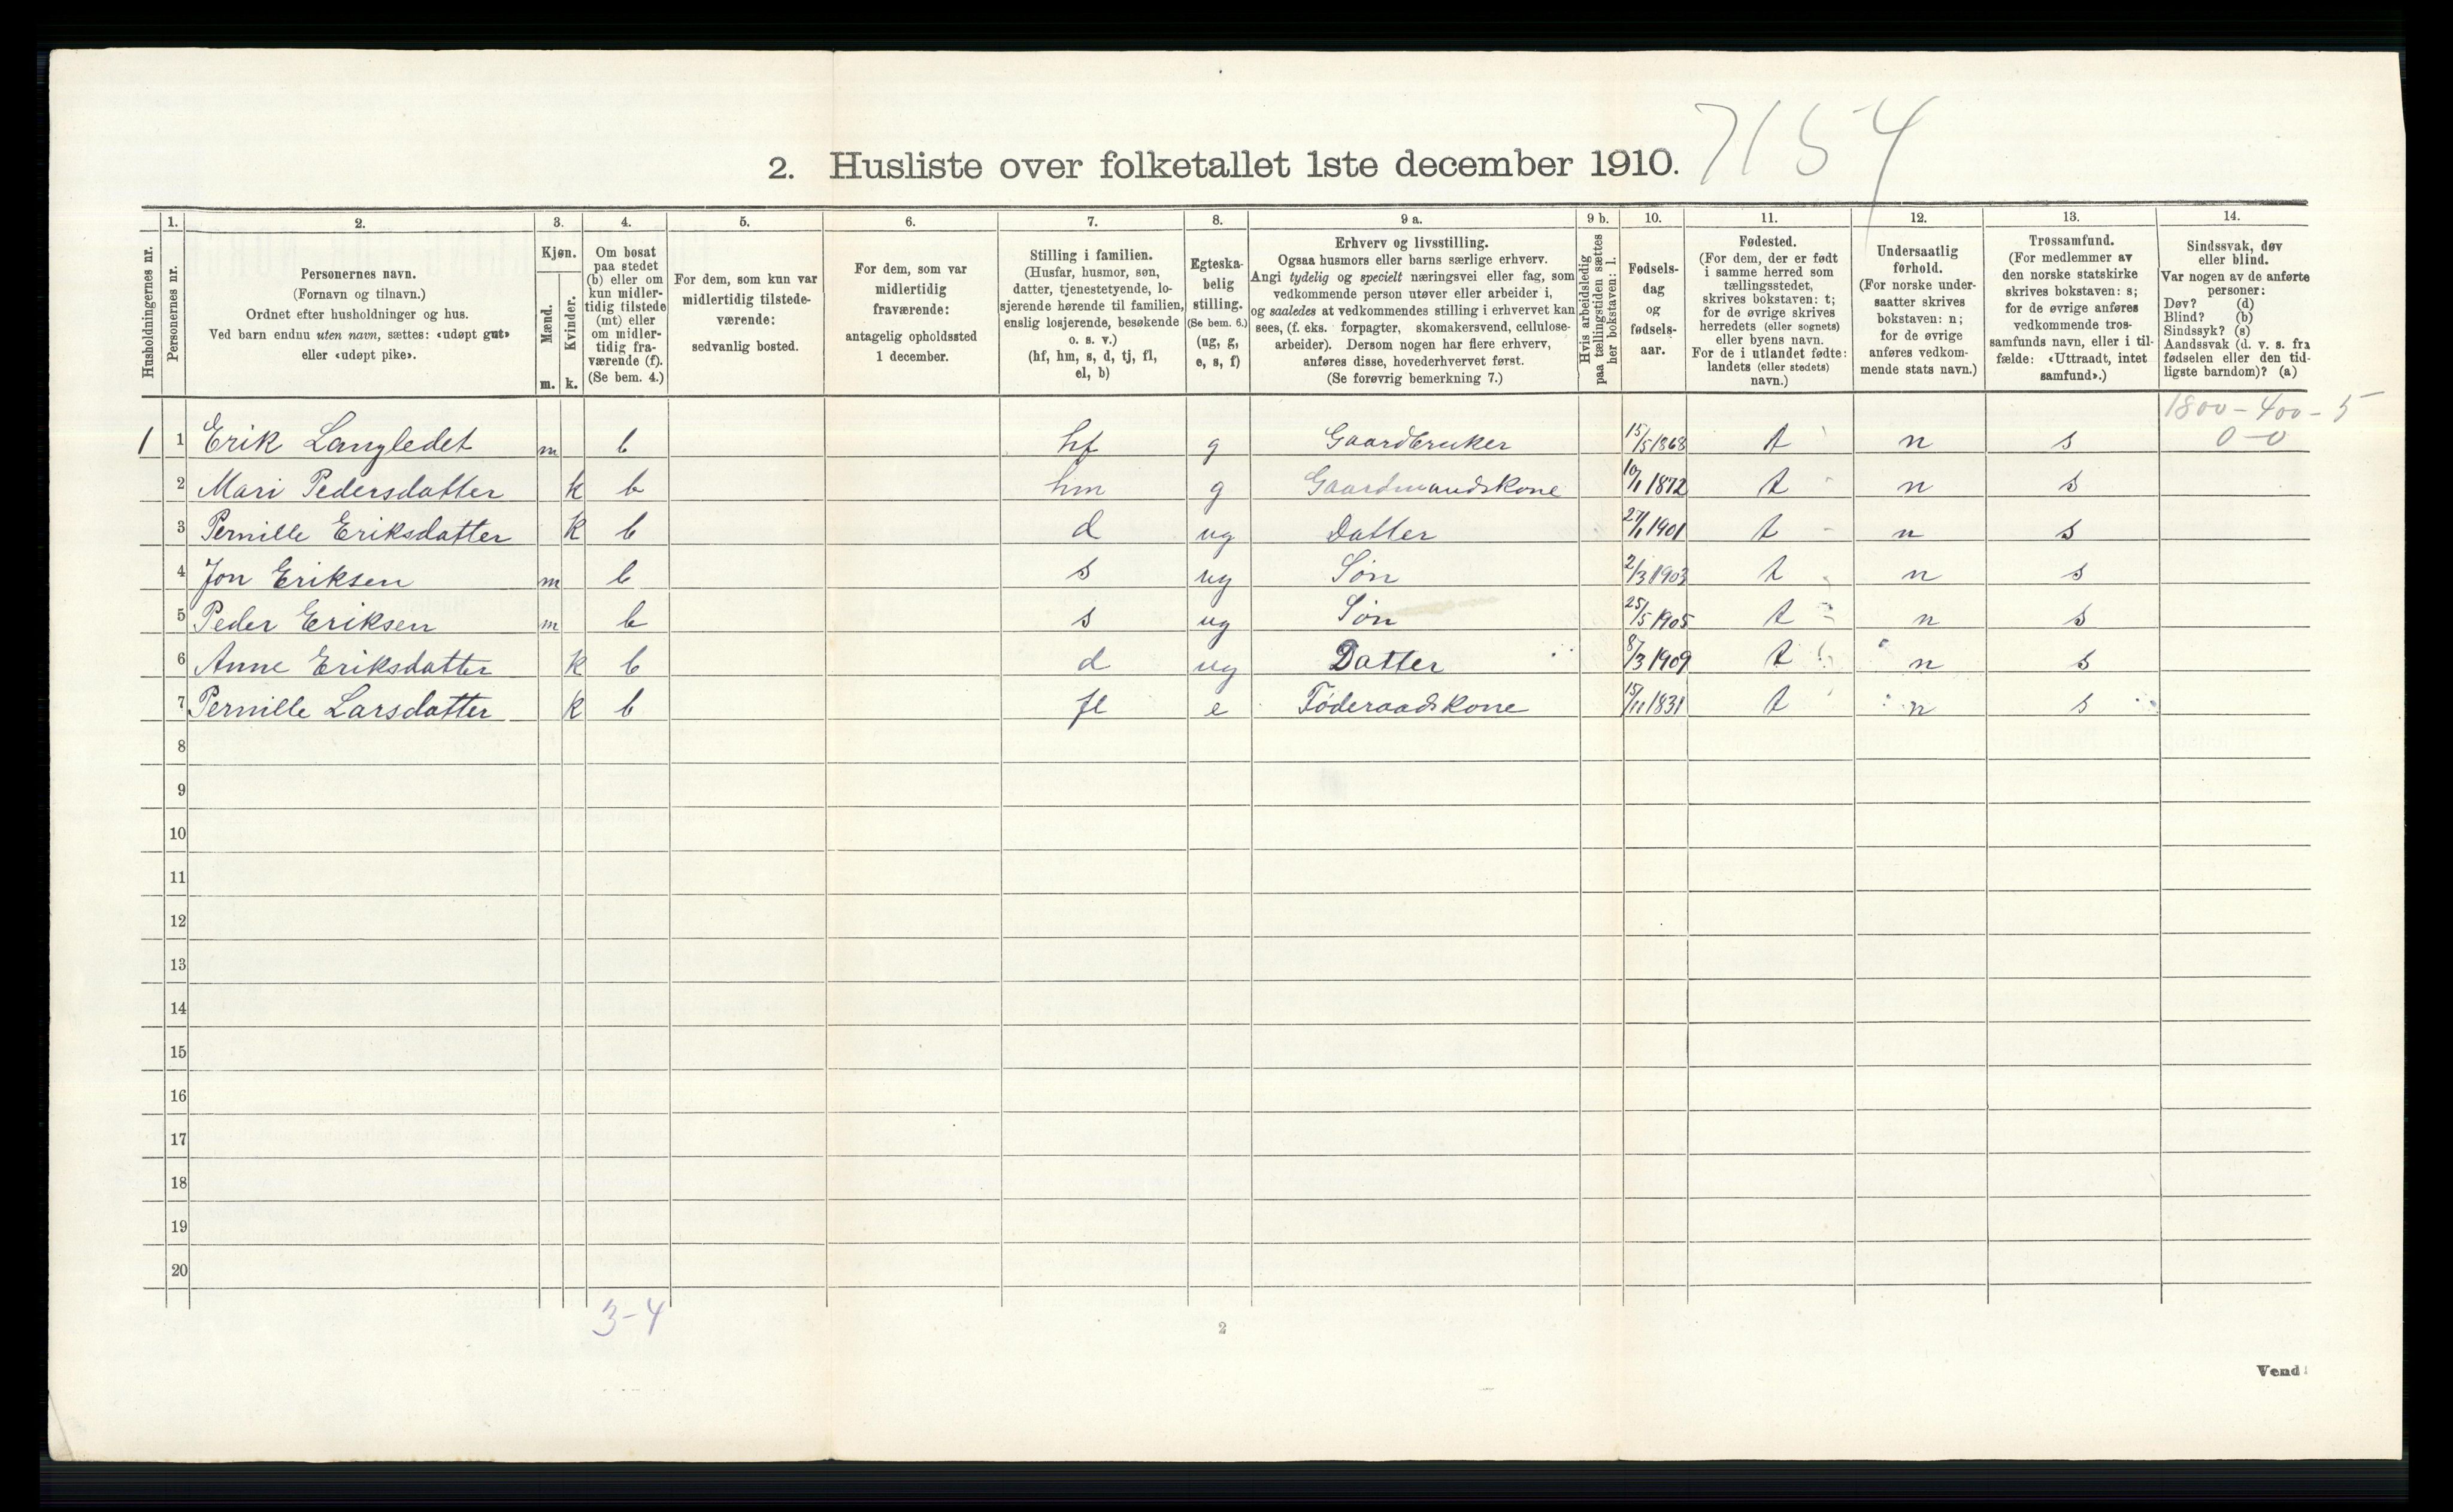 7154
2. Husliste over folketallet 1ste december 1910.
Husholdningernes nr.
1.
Personernes nr.
2.
Personernes navn.
(Fornavn og tilnavn.)
Ordnet efter husholdninger og hus.
Ved barn endnu uten navn, sættes: «udøpt gut»
eller «udøpt pike».
3.
Kjøn.
Mænd.
m.
Kvinder.
k.
4.
Om bosat
paa stedet
(b) eller om
kun midler-
tidig tilstede
(mt) eller
om midler-
tidig fra-
værende (f).
(Se bem. 4.)
5.
For dem, som kun var
midlertidig tilstede-
værende:
sedvanlig bosted.
6.
For dem, som var
midlertidig
fraværende:
antagelig opholdssted
1 december.
7.
Stilling i familien.
(Husfar, husmor, søn,
datter, tjenestetyende, lo-
sjerende hørende til familien,
enslig losjerende, besøkende
o. s. v.)
(hf, hm, s, d, tj, fl,
el, b)
8.
Egteska-
belig
stilling.
(Se bem. 6.)
(ug, g,
e, s, f)
9 a.
Erhverv og livsstilling.
Ogsaa husmors eller barns særlige erhverv.
Angi tydelig og specielt næringsvei eller fag, som
vedkommende person utøver eller arbeider i,
og saaledes at vedkommendes stilling i erhvervet kan
sees, (f. eks. forpagter, skomakersvend, cellulose-
arbeider). Dersom nogen har flere erhverv,
anføres disse, hovederhvervet først.
(Se forøvrig bemerkning 7.)
9 b.
Hvis arbeidsledig
paa tællingstiden sættes
her bokstaven: l.
10.
Fødsels-
dag
og
fødsels-
aar.
11.
Fødested.
(For dem, der er født
i samme herred som
tællingsstedet,
skrives bokstaven: t;
for de øvrige skrives
herredets (eller sognets)
eller byens navn.
For de i utlandet fødte:
landets (eller stedets)
navn.)
12.
Undersaatlig
forhold.
(For norske under-
saatter skrives
bokstaven: n;
for de øvrige
anføres vedkom-
mende stats navn.)
13.
Trossamfund.
(For medlemmer av
den norske statskirke
skrives bokstaven: s;
for de øvrige anføres
vedkommende tros-
samfunds navn, eller i til-
fælde: «Uttraadt, intet
samfund».)
14.
Sindssvak, døv
eller blind.
Var nogen av de anførte
personer:
Døv? (d)
Blind? (b)
Sindssyk? (s)
Aandssvak (d. v. s. fra
fødselen eller den tid-
ligste barndom)? (a)
1800-400-5
0-0
1 1 Erik Langledet m b hf g Gaardbruker 15/5 1868 t n s
2 Mari Pedersdatter k b hm g Gaardmandskone 10/1 1872 t n s
3 Pernille Eriksdatter k b d ug Datter 27/1 1901 t n s
4 Jon Eriksen m b s ug Søn 2/3 1903 t n s
5 Peder Eriksen m b s ug Søn 25/5 1905 t n s
6 Anne Eriksdatter k b d ug Datter 8/3 1909 t n s
7 Pernille Larsdatter k b fl e Føderaadskone 15/11 1831 t n s
8
9
10
11
12
13
14
15
16
17
18
19
20
3-4
2
Vend!